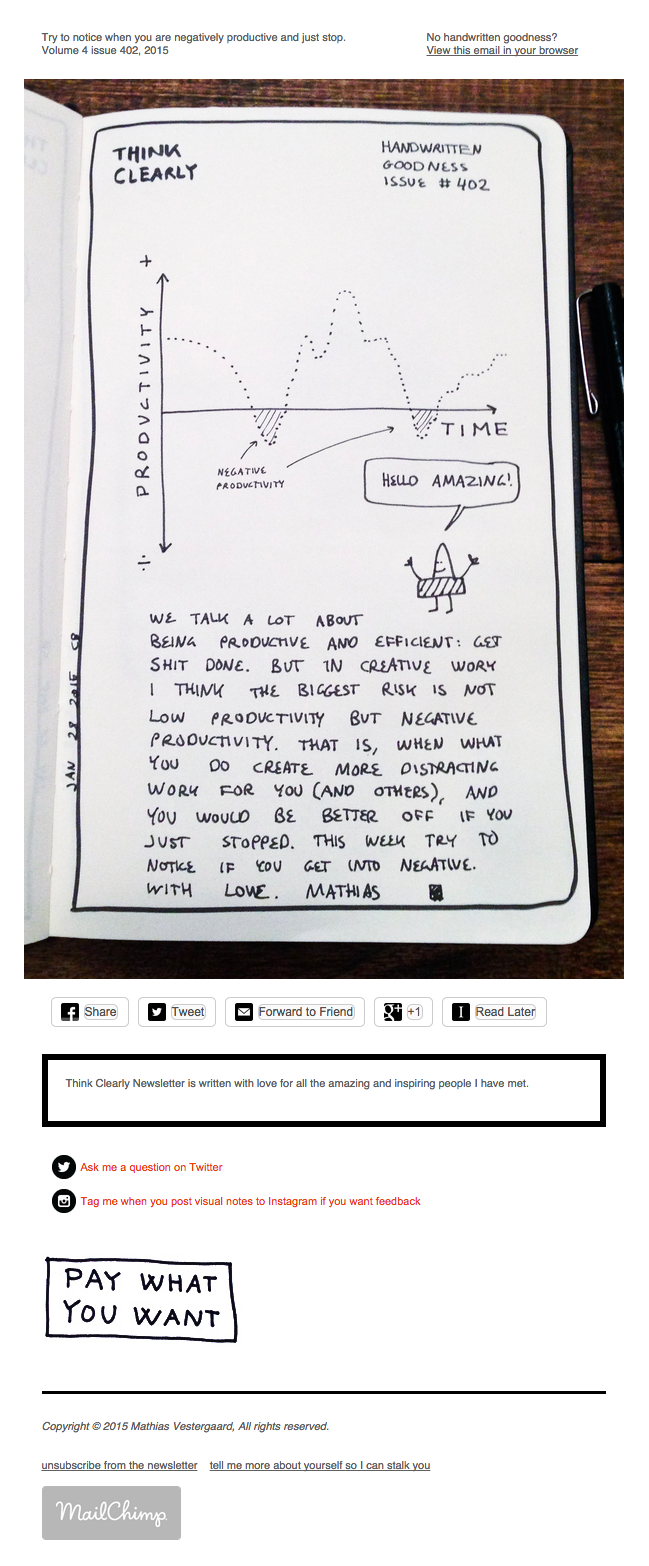 Try to notice when you are negatively productive and just stop.
Volume 4 issue 402, 2015
No handwritten goodness?
View this email in your browser
THINK
CLEARLY
HANDWRITTEN
GOODNESS
ISSUE # 402
+
PRODUCTIVITY
÷
TIME
NEGATIVE
PRODUCTIVITY
HELLO AMAZING!
WE TALK A LOT ABOUT
BEING PRODUCTIVE AND EFFICIENT: GET
SHIT DONE. BUT IN CREATIVE WORK
I THINK THE BIGGEST RISK IS NOT
LOW PRODUCTIVITY BUT NEGATIVE
PRODUCTIVITY. THAT IS, WHEN WHAT
YOU DO CREATE MORE DISTRACTING
WORK FOR YOU (AND OTHERS), AND
YOU WOULD BE BETTER OFF IF YOU
JUST STOPPED. THIS WEEK TRY TO
NOTICE IF YOU GET INTO NEGATIVE.
WITH LOVE. MATHIAS
JAN 28 2015
Share
Tweet
Forward to Friend
+1
Read Later
Think Clearly Newsletter is written with love for all the amazing and inspiring people I have met.
Ask me a question on Twitter
Tag me when you post visual notes to Instagram if you want feedback
PAY WHAT
YOU WANT
Copyright © 2015 Mathias Vestergaard, All rights reserved.
unsubscribe from the newsletter tell me more about yourself so I can stalk you
MailChimp